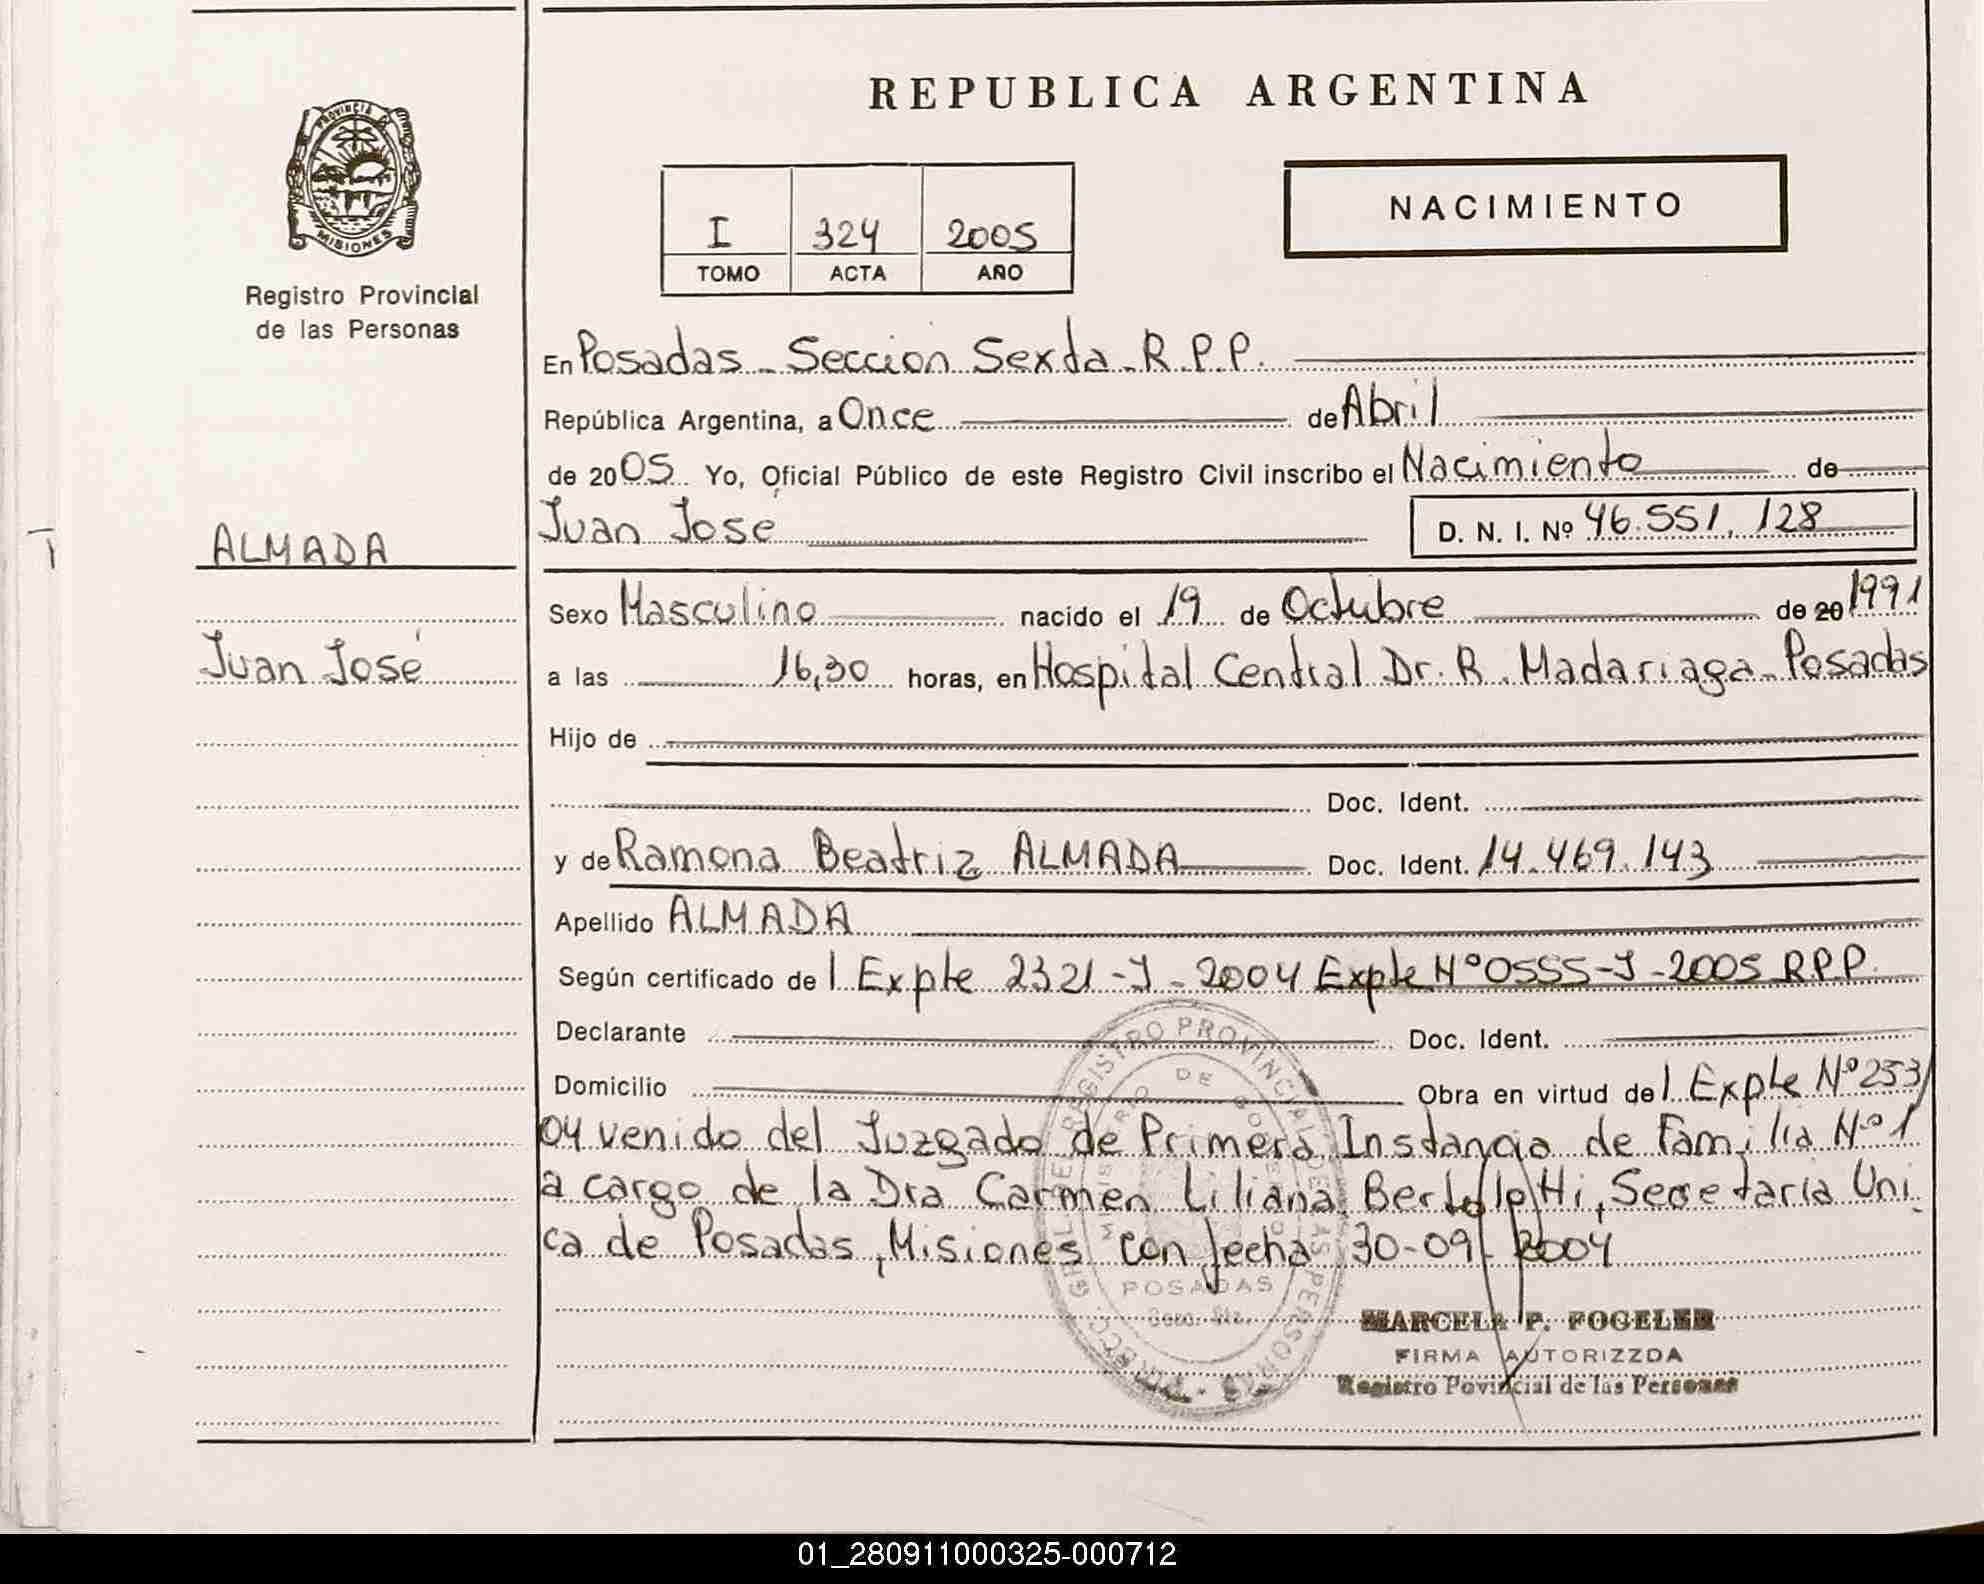 PROVINCIA DE
MISIONES
Registro Provincial
de las Personas
ALMADA
Juan José
REPUBLICA ARGENTINA
NACIMIENTO
I 324 2005
TOMO ACTA AÑO
En Posadas - Seccion Sexta - R.P.P.
República Argentina, a Once de Abril
de 2005 Yo, Oficial Público de este Registro Civil inscribo el Nacimiento de
Juan José D. N. I. Nº 46.551.128
Sexo Masculino nacido el 19 de Octubre de 20 1991
a las 16,30 horas, en Hospital Central Dr. R. Madariaga - Posadas
Hijo de
Doc. Ident.
y de Ramona Beatriz ALMADA Doc. Ident. 14.469.143
Apellido ALMADA
Según certificado de l Expte 2321-J-2004 Expte Nº 0555-J-2005 R.P.P.
Declarante Doc. Ident.
Domicilio Obra en virtud de l Expte Nº 253/
04 venido del Juzgado de Primera Instancia de Familia Nº 1
a cargo de la Dra Carmen Liliana Bertolotti, Secretaria Uni
ca de Posadas, Misiones con fecha 30-09-2004
REGISTRO PROVINCIAL DE LAS PERSONAS
POSADAS
MARCELA P. FOGELER
FIRMA AUTORIZZDA
Registro Povincial de las Personas
01_280911000325-000712